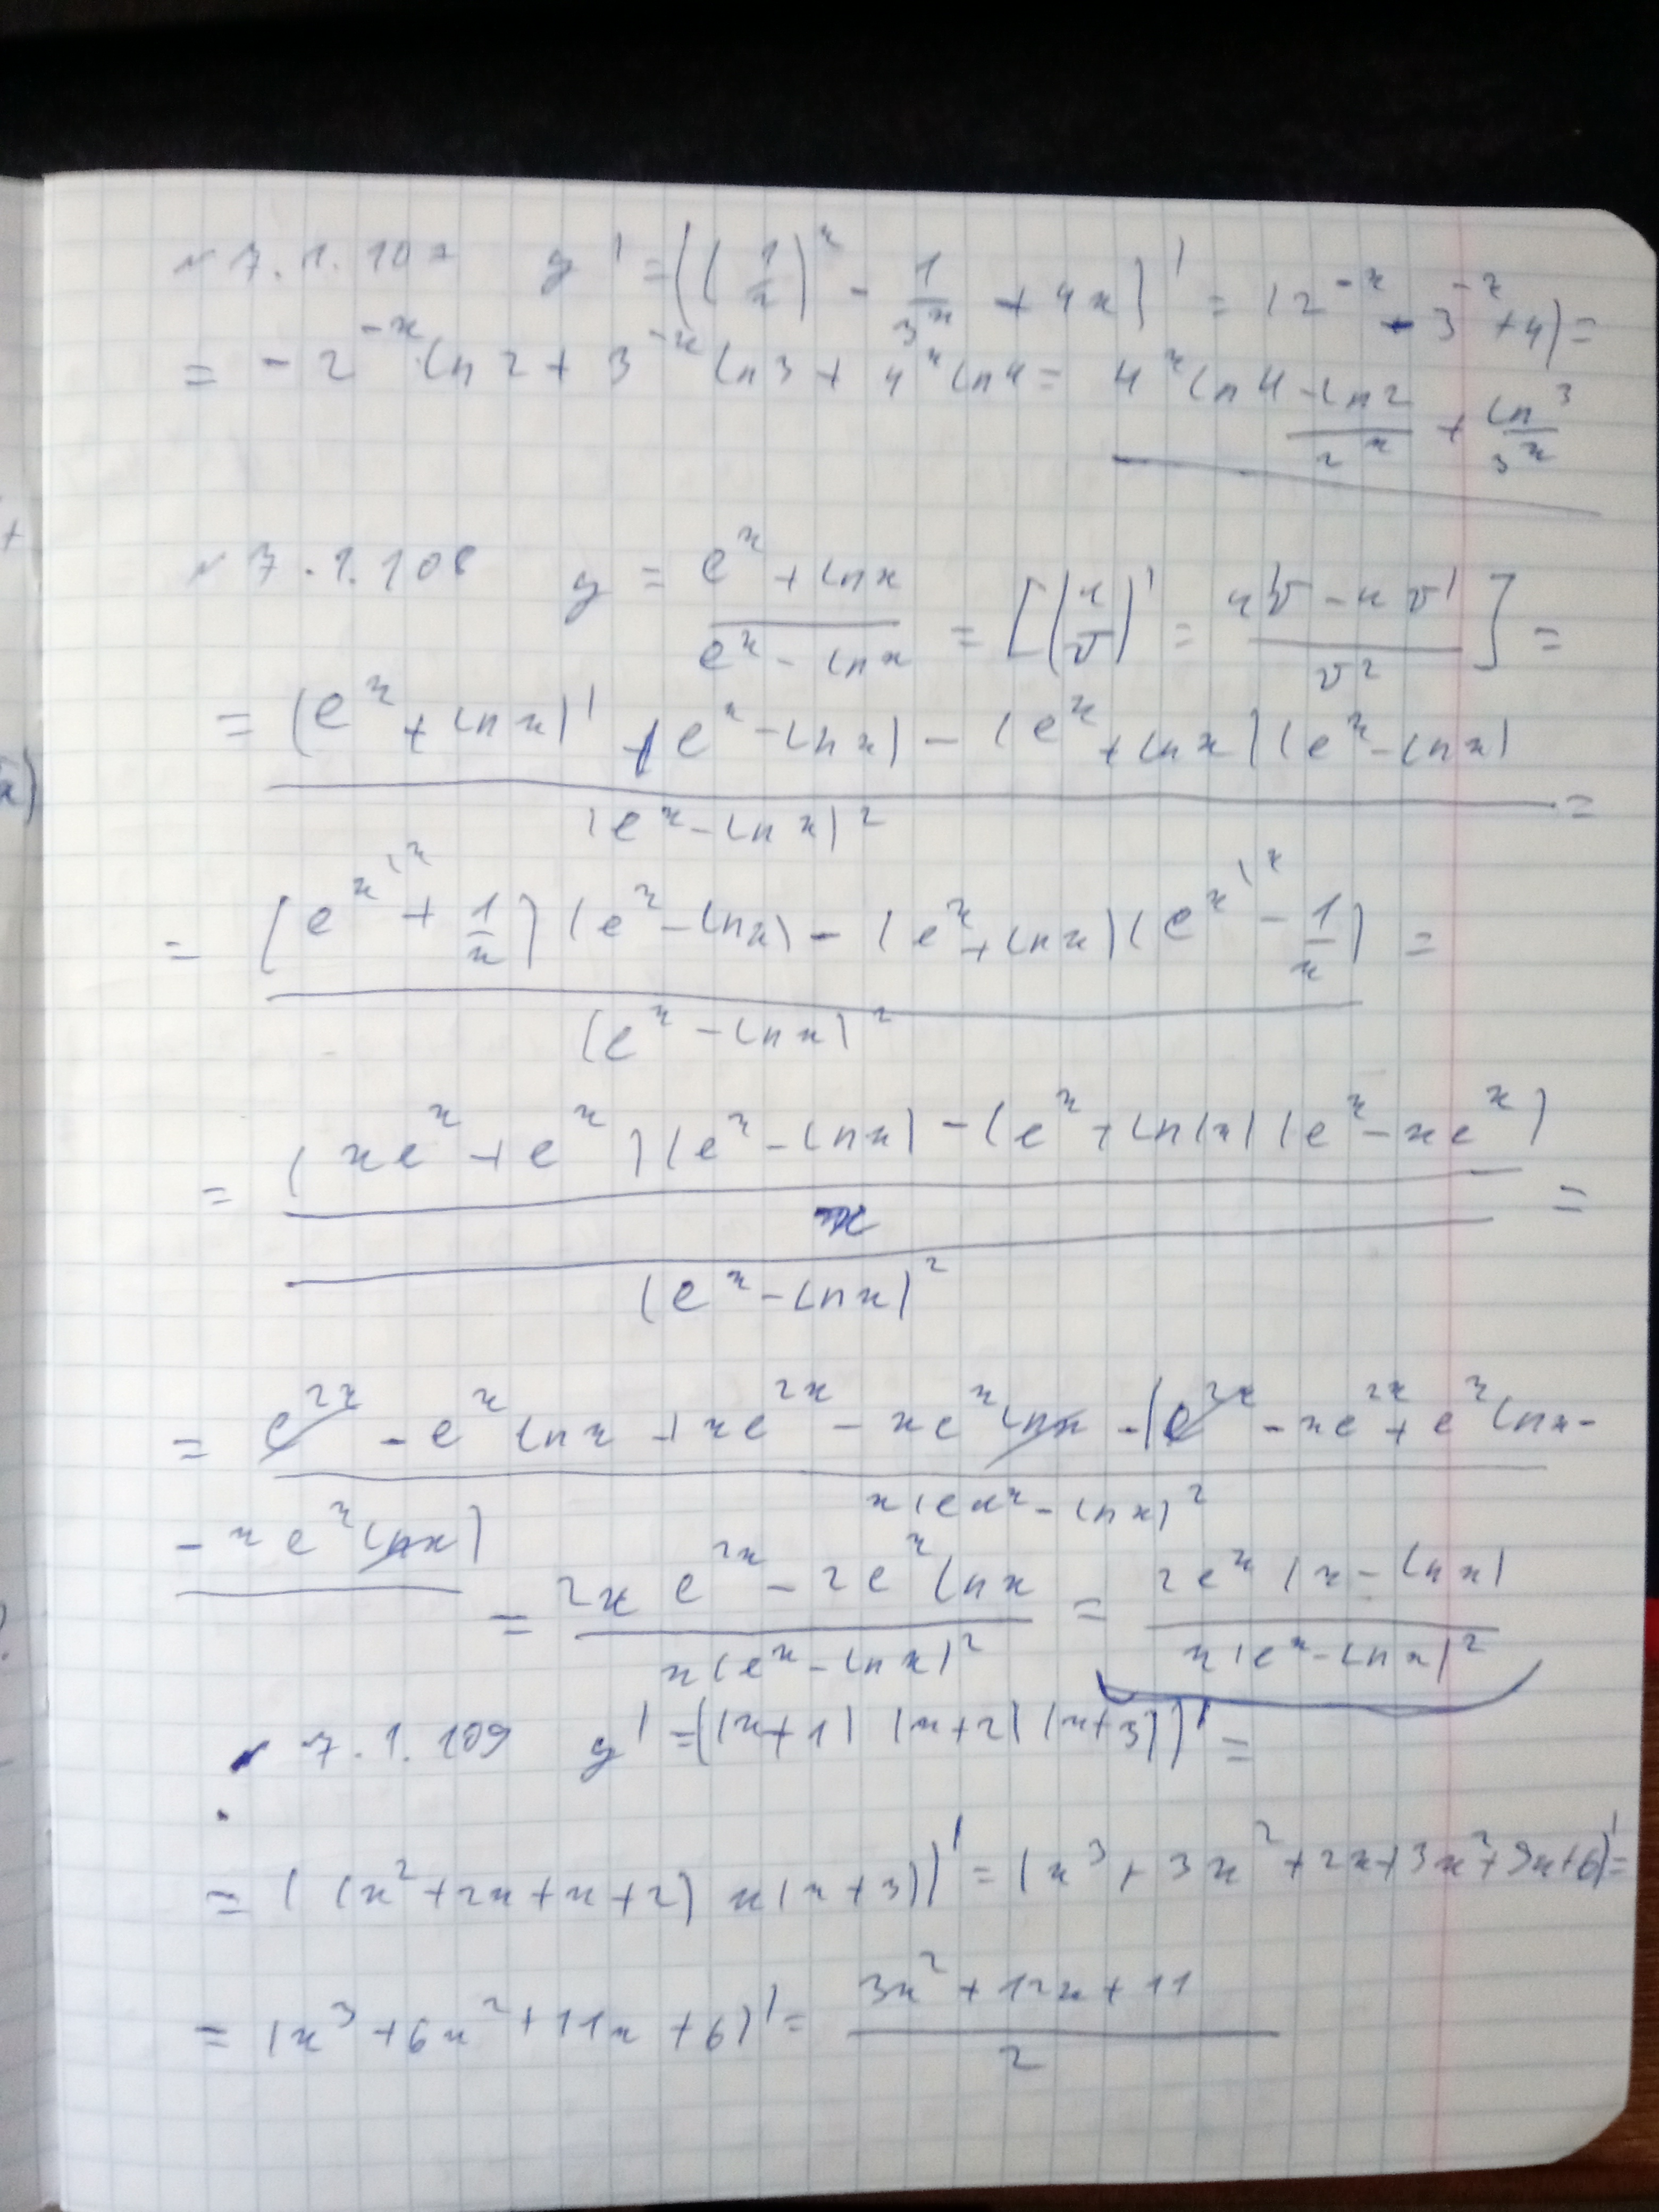 N 7.1.107 y' = ((1/2)^x - 1/3^x + 4x)' = (2^-x - 3^-x + 4) =
= - 2^-x · ln 2 + 3^-x ln 3 + 4^x ln 4 = 4^x ln 4 - ln 2/2^x + ln 3/3^x
N 7.1.108 y = (e^x + ln x)/(e^x - ln x) = [(u/v)' = (u'v - uv')/v^2] =
= ((e^x + ln x)' (e^x - ln x) - (e^x + ln x)(e^x - ln x))/(e^x - ln x)^2 =
= ((e^x^(x + 1/x)(e^x - ln x) - (e^x + ln x)(e^x^(x - 1/x))/(e^x - ln x)^2 =
= (((xe^x + e^x)(e^x - ln x) - (e^x + ln(x)(e^x - xe^x))/x)/(e^x - ln x)^2 =
= (e^2x - e^x ln x + xe^2x - xe^x ln x - (e^2x - xe^2x + e^x ln x -)/(x(e^x - ln x)^2)
- xe^x ln x) = (2x e^2x - 2e^x ln x)/(x(e^x - ln x)^2) = (2e^x (x - ln x))/(x(e^x - ln x)^2)
N 7.1.109 y' = ((x+1)(x+2)(x+3))' =
= ((x^2 + 2x + x + 2) x (x + 3))' = (x^3 + 3x^2 + 2x + 3x^2 + 9x + 6)' =
= (x^3 + 6x^2 + 11x + 6)' = (3x^2 + 12x + 11)/2